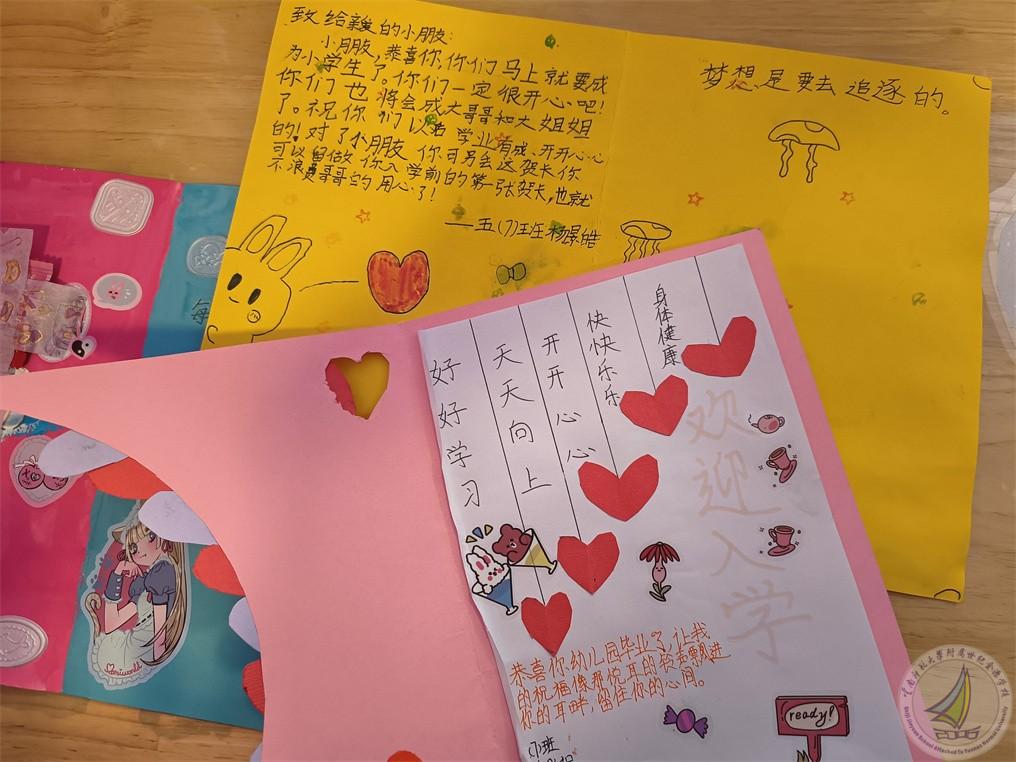 致给亲爱的小朋友:
小朋友,恭喜你,你们马上就要成
为小学生了。你们一定很开心吧!
你们也将会成大哥哥和大姐姐
了。祝你们以后学业有成、开开心心
的!对了小朋友你可另会这贺卡,你
可以留做你入学前的第一张贺卡,也就
不浪费哥哥的用心了!
——五(7)班
梦想是要去追逐的。
好好学习
天天向上
开开心心
快快乐乐
身体健康
欢迎入学
恭喜你幼儿园毕业了,让我
的祝福像那悦耳的铃声飘进
你的耳畔,留住你的心间。
(7)班
ready!